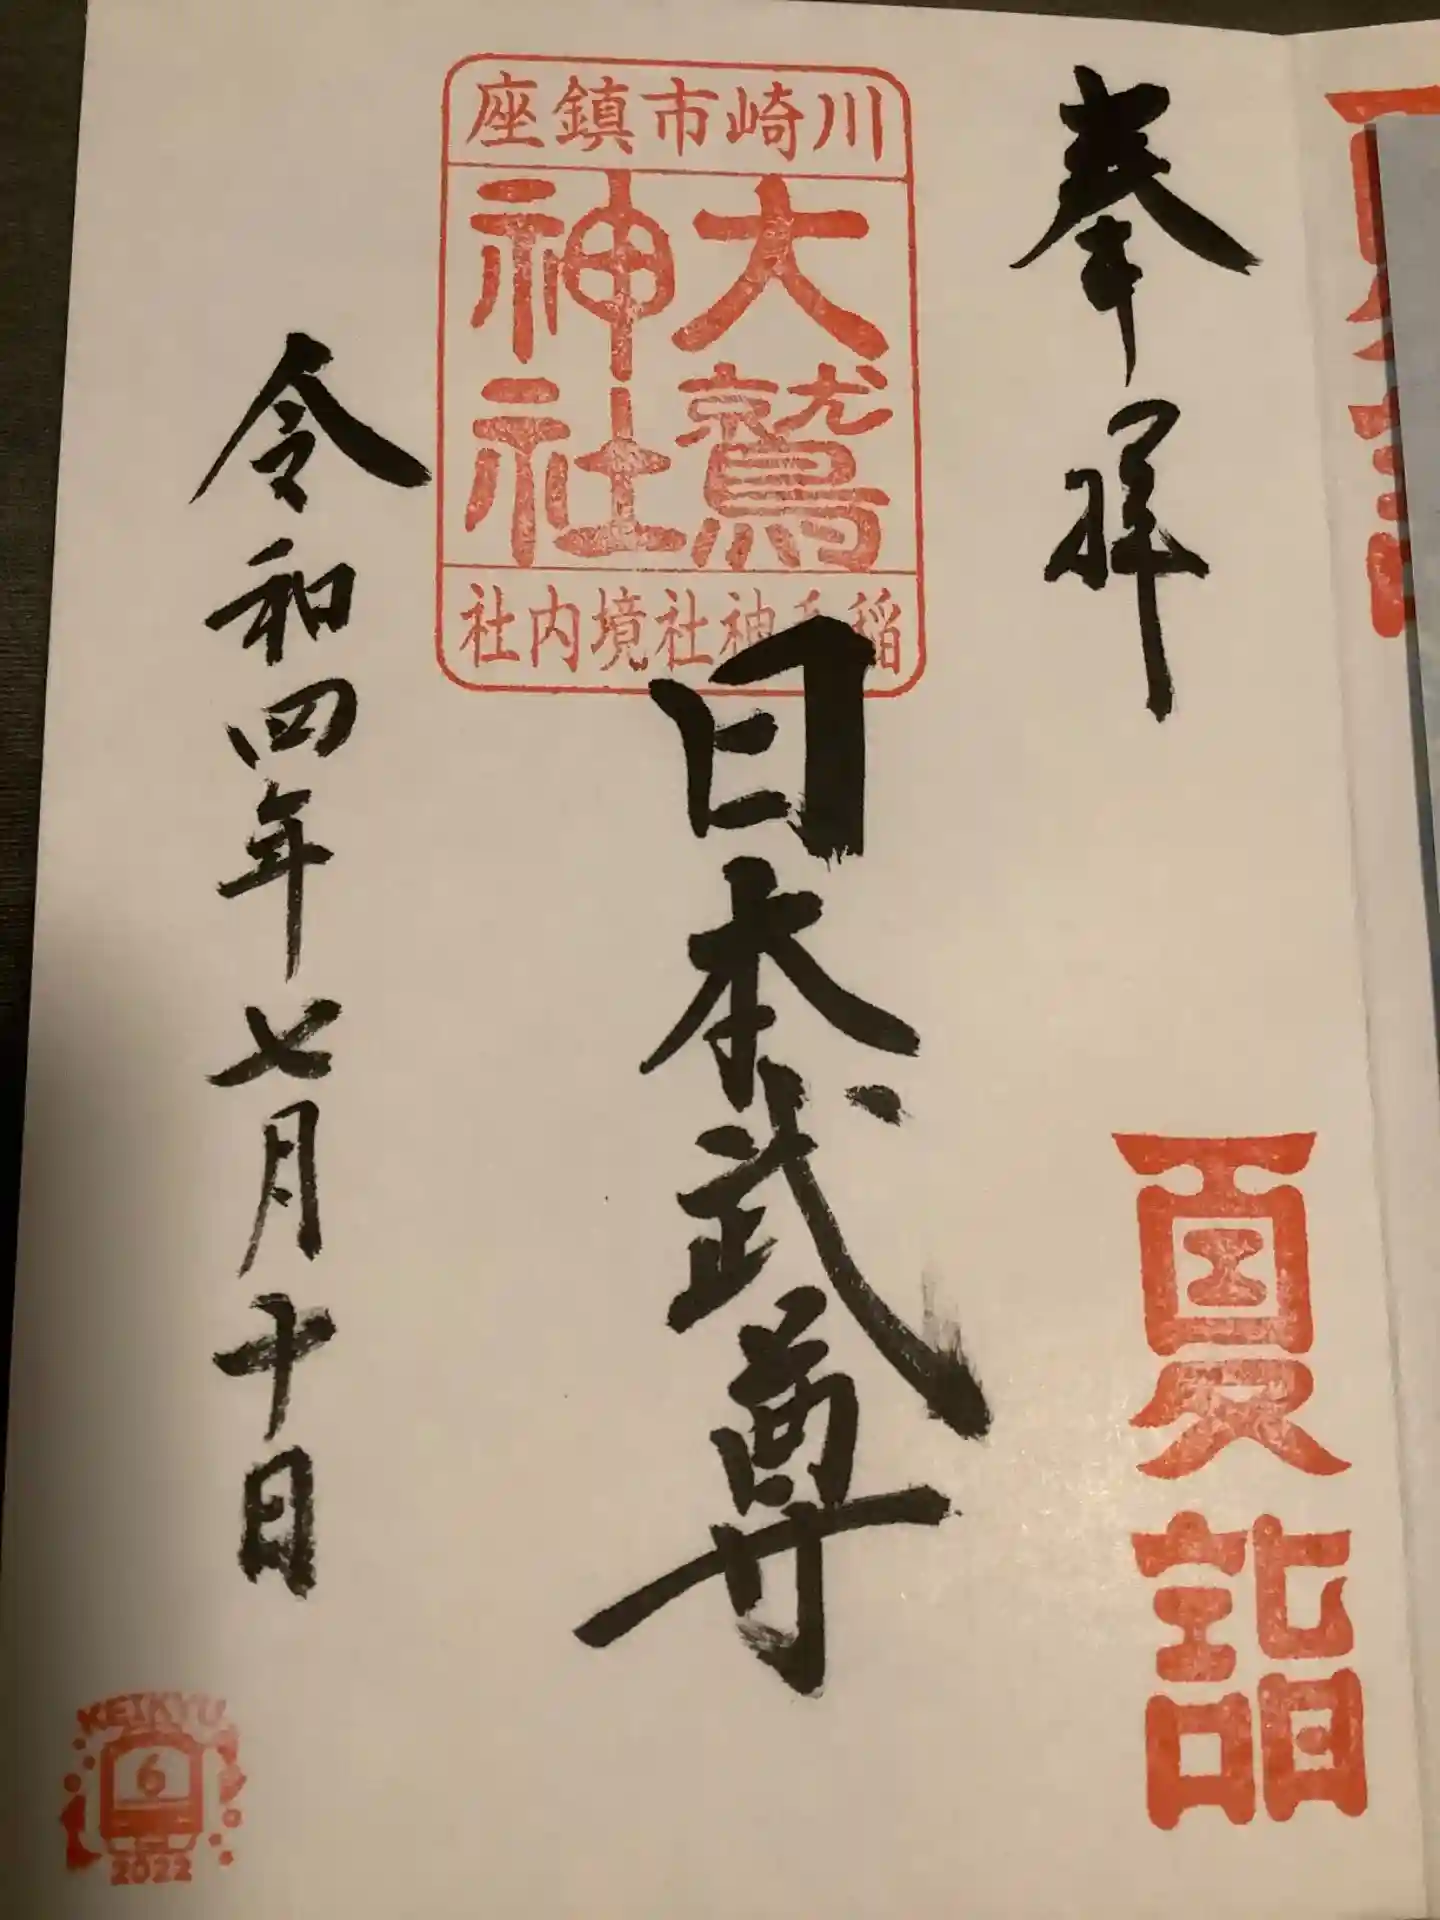 奉拝
夏詣
川崎市鎮座
大鷲
神社
稲毛神社境内社
日本武尊
令和四年七月十日
KEIKYU
6
2022